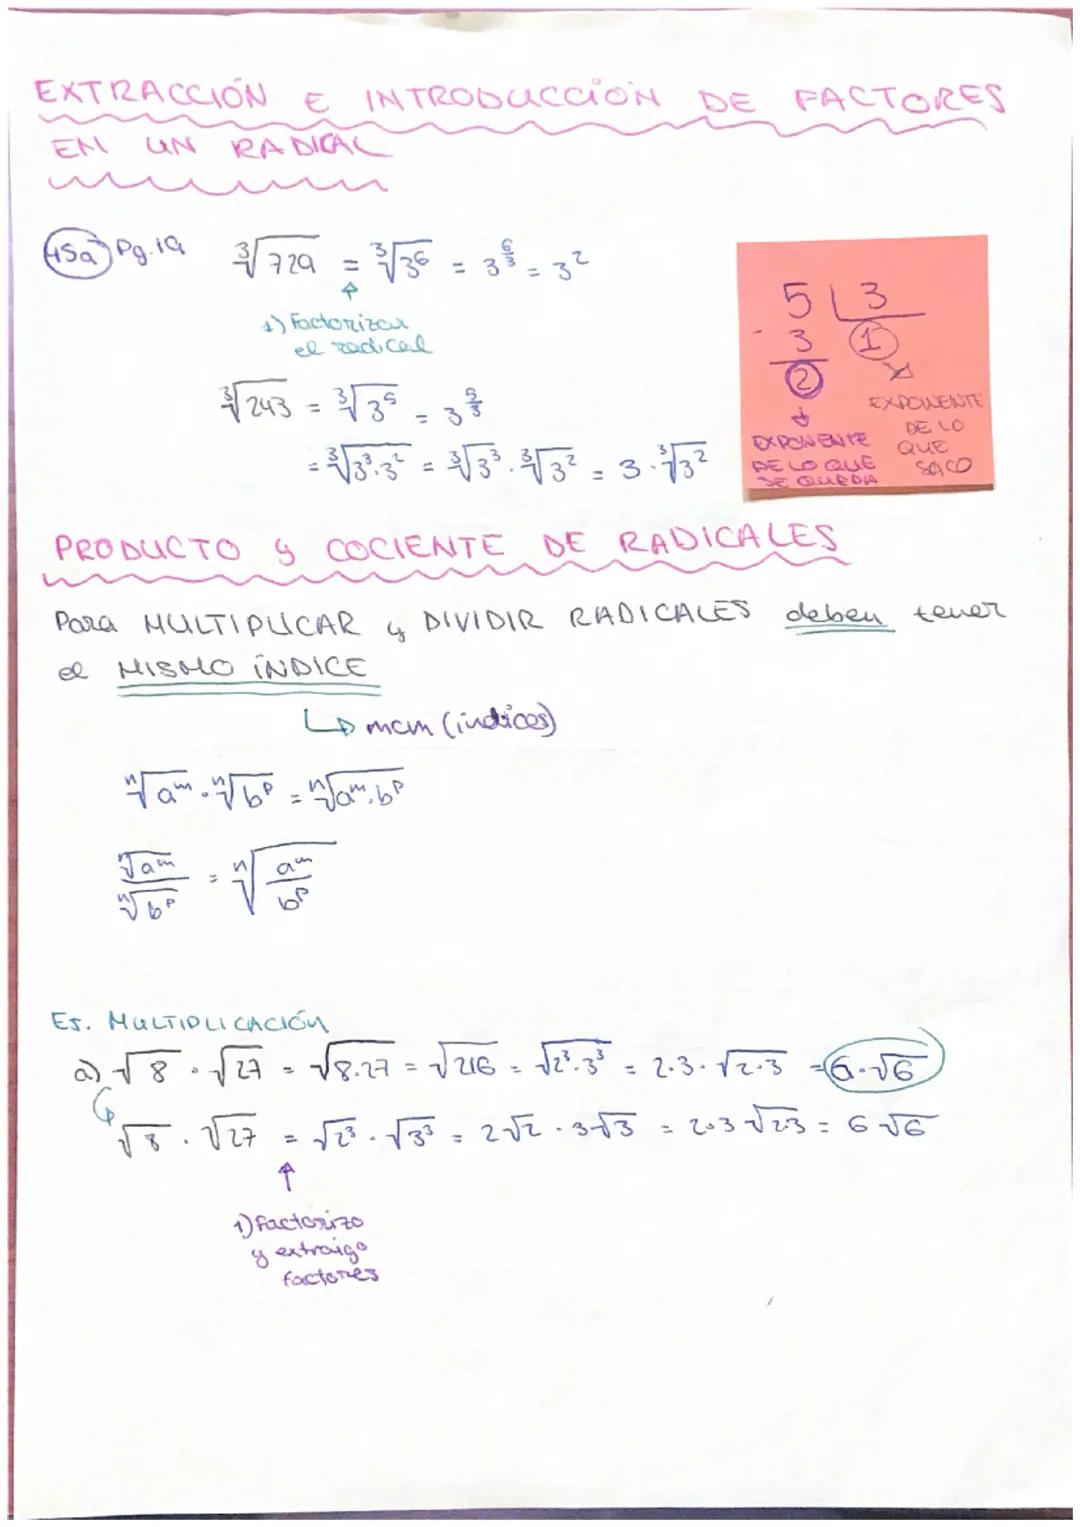 EXTRACCIÓN E INTRODUCCIÓN DE FACTORES
EN UN RADICAL
45a Pg.19 ∛729 = ∛3⁶ = 3^(6/3) = 3²
1) Factorizar
el radical
∛243 = ∛3⁵ = 3^(5/3)
= ∛3³·3² = ∛3³ · ∛3² = 3 · ∛3²
5 | 3
- 3 1
2
EXPONENTE
DE LO QUE
SE QUEDA
EXPONENTE
DE LO
QUE
SACO
PRODUCTO y COCIENTE DE RADICALES
Para MULTIPLICAR y DIVIDIR RADICALES deben tener
el MISMO ÍNDICE
↳ mcm (índices)
ⁿ√a^m · ⁿ√b^p = ⁿ√a^m·b^p
ⁿ√a^m / ⁿ√b^p = ⁿ√(a^m / b^p)
EJ. MULTIPLICACIÓN
a) √8 · √27 = √8·27 = √216 = √2³·3³ = 2·3·√2·3 = 6·√6
√8 · √27 = √2³ · √3³ = 2√2 · 3√3 = 2·3√2·3 = 6√6
1) factorizo
y extraigo
factores